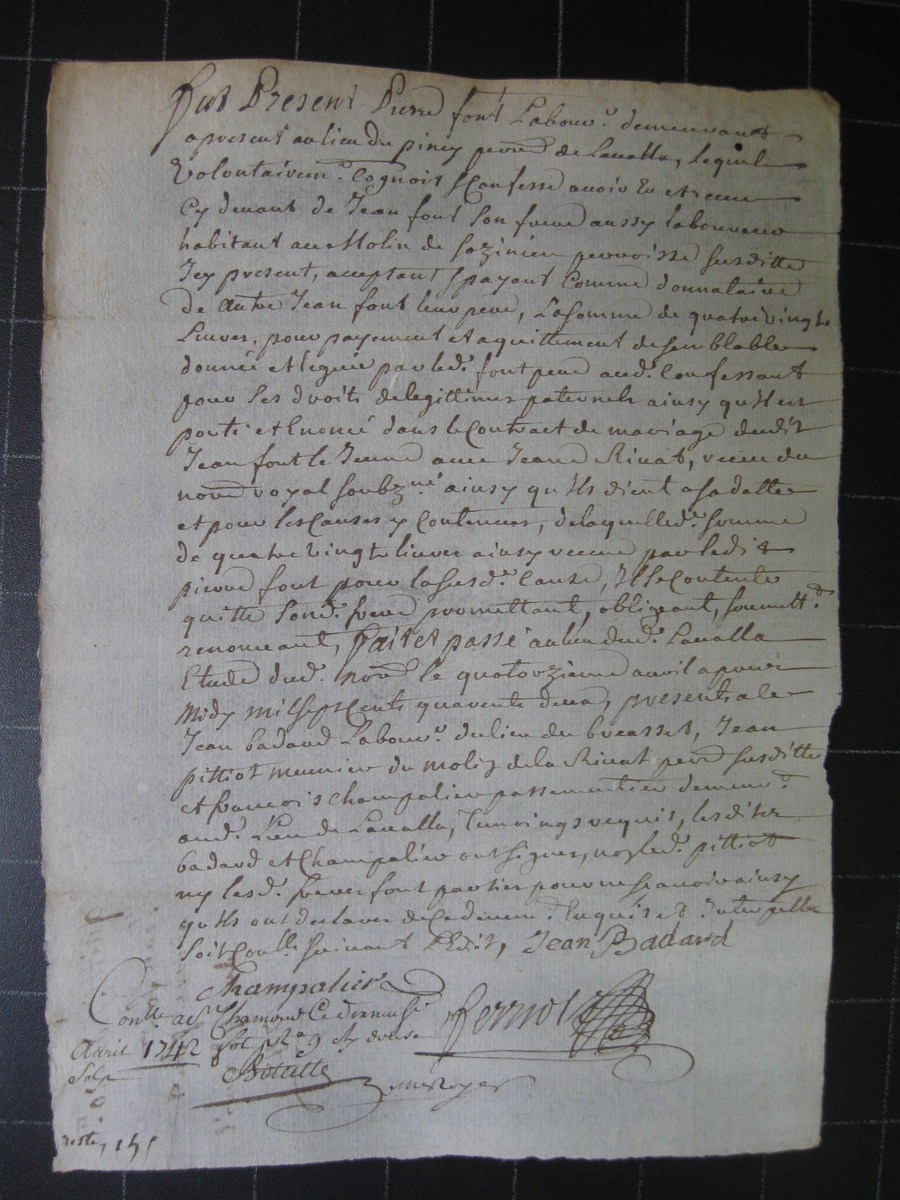 Fut Present Pierre font Labour.r demeurant
apresent au lieu du piney parr.e de Lavalla, lequel
Volontairem.t Cognoit & Confesse avoir Eu et receu
Cy devant de Jean font Son frere aussy laboureur
habitant au Molin de Soziniere parroisse susditte
Icy present, acceptant & payant Comme donnataire
de autre Jean font leur pere, La Somme de quatrevingts
Livres, pour payement et aquittement de semblable
donnée et leguée par led.t font pere aud.t Confessant
pour Ses droits de legittimes paternels ainsy qu'il est
porté et Enoncé dans le Contract de mariage dudit
Jean font le Jeune avec Jeanne Rivat, receu du
nore royal soubz.né ainsy qu'ils dient a sa datte
et pour les Causes y Contenues, de laquelled.e somme
de quatre vingts livres ainsy receue par ledit
pierre font pour la susd.e Cause, Il se Contente
quitte Sond.t frere promettant, obligeant, soumett.t
renonceant, fait et passé au lieu dud.t Lavalla
Etude dud.t nore le quatorzieme avril apres
Midy mil sept Cents quarente deux, presents a ce
Jean badard Labour.r du lieu du breasset, Jean
pittiot meunier du molin de la Rivat parr.e susditte
et francois Champalier passementier demeur.t
aud.t Lieu de Lavalla, Temoings requis, lesdits
badard et Champalier ont signes, non led.t pittiot
ny lesd.t freres font parties pour ne scavoir ainsy
qu'ils ont declarer de Ce duem.t Enquis et Interpellés
Soit Conll.e suivant L'Edit, Jean Badard
Champalier
Conlle a St Chamond Ce dixneuf
Avril 1742 fol. 9 reçu douse
Sols
ferriol